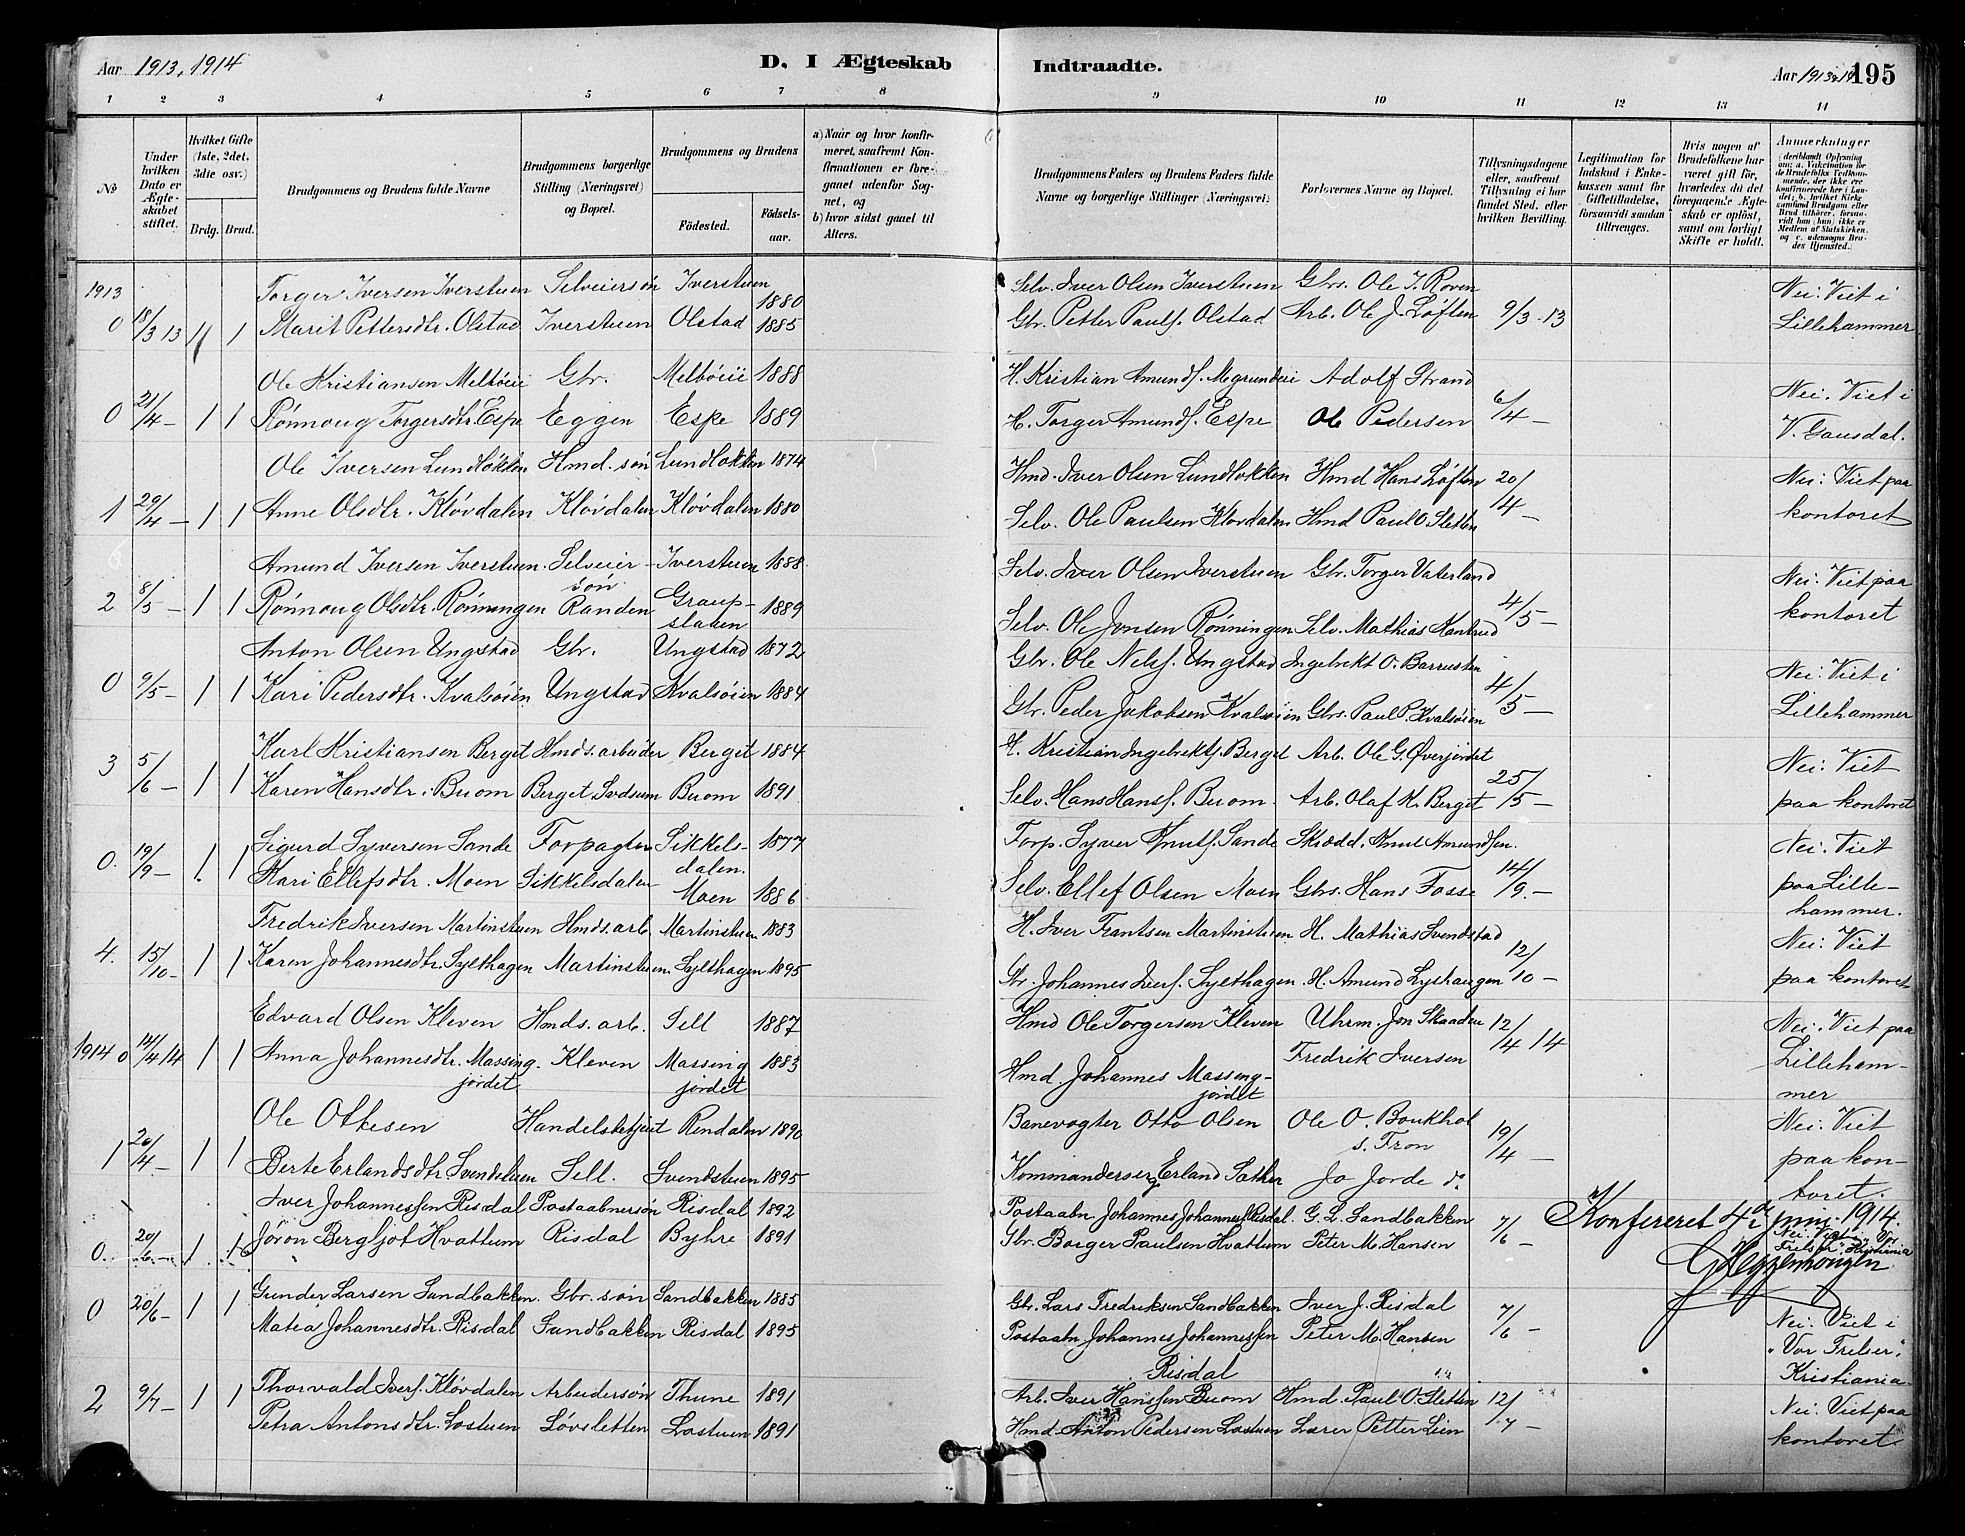 Aar 1913, 1914
D. I Ægteskab Indtraadte.
Aar 1913 14 195
1 2 3 4 5 6 7 8 9 10 11 12 13 14
No
Under hvilken Dato er Ægteskabet stiftet.
Hvilket Gifte (1ste, 2det, 3die osv.)
Brdg. Brud.
Brudgommens og Brudens fulde Navne
Brudgommens borgerlige Stilling (Næringsvei) og Bopæl.
Brudgommens og Brudens
Fødested. Fødselsaar.
a) Naar og hvor konfirmeret, saafremt Konfirmationen er foregaaet udenfor Sognet, og b) hvor sidst gaaet til Alters.
Brudgommens Faders og Brudens Faders fulde Navne og borgerlige Stillinger (Næringsvei)
Forlovernes Navne og Bopæl.
Tillysningsdagene eller, saafremt Tillysning ei har fundet Sted, efter hvilken Bevilling.
Legitimation for Indskud i Enkekassen samt for Giftetilladelse, forsaavidt saadan tiltrænges.
Hvis nogen af Brudefolkene har været gift før, hvorledes da det foregaaende Ægteskab er opløst, samt om lovligt Skifte er holdt.
Anmerkninger
1913
Torger Iversen Iverstuen Selveiersøn Iverstuen 1880 Selv. Iver Olsen Iverstuen Gbrs. Ole I. Roven Nei. Viet i
0 18/3 13 1 1 Marit Pettersdtr. Olstad Iverstuen Olstad 1885 Gbr. Petter Pauls. Olstad Arb. Ole J. Løften 9/3 13 Lillehammer
Ole Kristiansen Melbøeie Gbr. Melbøeie 1888 H. Kristian Amunds. Megrundeie Adolf Strand Nei. Viet i
0 21/4 – 1 1 Rønnoug Torgersdtr. Espe Eggen Espe 1889 H. Torger Amunds. Espe Ole Pedersen 6/4 – V. Gausdal.
Ole Iversen Lundløkken Hmd. søn Lundløkken 1874 Hmd. Iver Olsen Lundløkken Hmd Hans Løften 20/4 – Nei. Viet paa
1 29/4 – 1 1 Anne Olsdtr. Kløvdalen Kløvdalen Kløvdalen 1880 Selv. Ole Paulsen Kløvdalen Hmd Paul O. Sletten kontoret
Amund Iversen Iverstuen Selveiersøn Iverstuen 1888 Selv. Iver Olsen Iverstuen Gbr. Torger Vaterland Nei. Viet paa
2 8/5 – 1 1 Rønnoug Olsdtr. Rønningen Randen Graupslauen 1889 Selv. Ole Jonsen Rønningen Selv. Mathias Kantrud 4/5 – kontoret
Anton Olsen Ungstad Gbr. Ungstad 1872 Gbr. Ole Nels. Ungstad Ingebrikt O. Barrusten Nei. Viet i
0 9/5 – 1 1 Kari Pedersdtr. Kvalsøien Ungstad Kvalsøien 1884 Gbr. Peder Jakobsen Kvalsøien Gbrs. Paul P. Kvalsøien 4/5 – Lillehammer
Karl Kristiansen Berget Hmds. arbeider Berget 1884 H. Kristian Ingebrikts. Berget Arb. Ole G. Øverjordet Nei. Viet
3 5/6 – 1 1 Karen Hansdtr. Buom Berget Svdsum Buom 1891 Selv. Hans Hans. Buom. Arb. Olaf K. Berget 25/5 – paa kontoret
Sigurd Syversen Sande Forpagter Sikkelsdalen. 1877 Forp. Syver Knuts. Sande Skrædd. Knut Amundsen. Nei. Viet
0. 19/9 – 1 1 Kari Ellefsdtr. Moen Sikkelsdalen Moen 1886 Selv. Ellef Olsen Moen Gbrs. Hans Fosse 14/9. – paa Lillehammer.
Fredrik Iversen Martinstuen Hmds. arb. Martinstuen 1883 H. Iver Frantsen Martinstuen H. Mathias Svendstad Nei. Viet
4. 15/10 – 1 1 Karen Johannesdtr. Sylthagen Martinstuen. Sylthagen 1895 Gbr. Johannes Ivers. Sylthagen. H. Amund Lyshaugen 12/10 – paa kontoret
Edvard Olsen Kleven Hmds. arb. Sell 1887 Hmd Ole Torgersen Kleven Uhrm. Jon Skaaden Nei. Viet paa
1914 0 14/4 14 1 1 Anna Johannesdtr. Massingjordet Kleven Massingjordet 1883 Hmd. Johannes Massengjordet Fredrik Iversen 12/4 14 Lillehammer
Ole Ottesen Handelsbetjent Rendalen 1890 Banevogter Otto Olsen Ole O. Boukhol s. Fron Nei. Viet
1 20/4 – 1 1 Berte Erlandsdtr. Svendstuen Sell. Svendstuen 1895 Kommandersergj. Erland Sæther Jo Jorde do 19/4 – paa kontoret.
Iver Johannessen Risdal Postaabnersøn Risdal 1892 Postaabn. Johannes Johanness. Risdal. G. L. Sandbakken 7/6 – Konfereret 4de juni 1914.
0. 20/6 – 1 1 Jørøn Bergljot Hvattum Risdal Byhre 1891 Gbr. Borger Paulsen Hvattum Peter M. Hansen Nei. Viet i Vor Frelser Kristiania
G. Heyerdhougen
Gunder Larsen Sandbakken Gbr. søn Sandbakken 1885 Gbr. Lars Fredriksen Sandbakken Iver J. Risdal Nei. Viet i
0 20/6 – 1 1 Matea Johannesdtr. Risdal Sandbakken Risdal 1895 Postaabn Johannes Johannessen Risdal Peter M. Hansen 7/6 – "Vor Frelser", Kristiania
Thorvald Ivers. Kløvdalen Arbeidersøn Thune 1891 Arb. Iver Hanssen Buom Hmd. Paul O. Sletten Nei. Viet paa
2 9/7 – 1 1 Petra Antonsdtr. Lostuen Løvsletten Lostuen 1891 Hmd. Anton Pedersen Lostuen Lærer Petter Lien 12/7 – kontoret